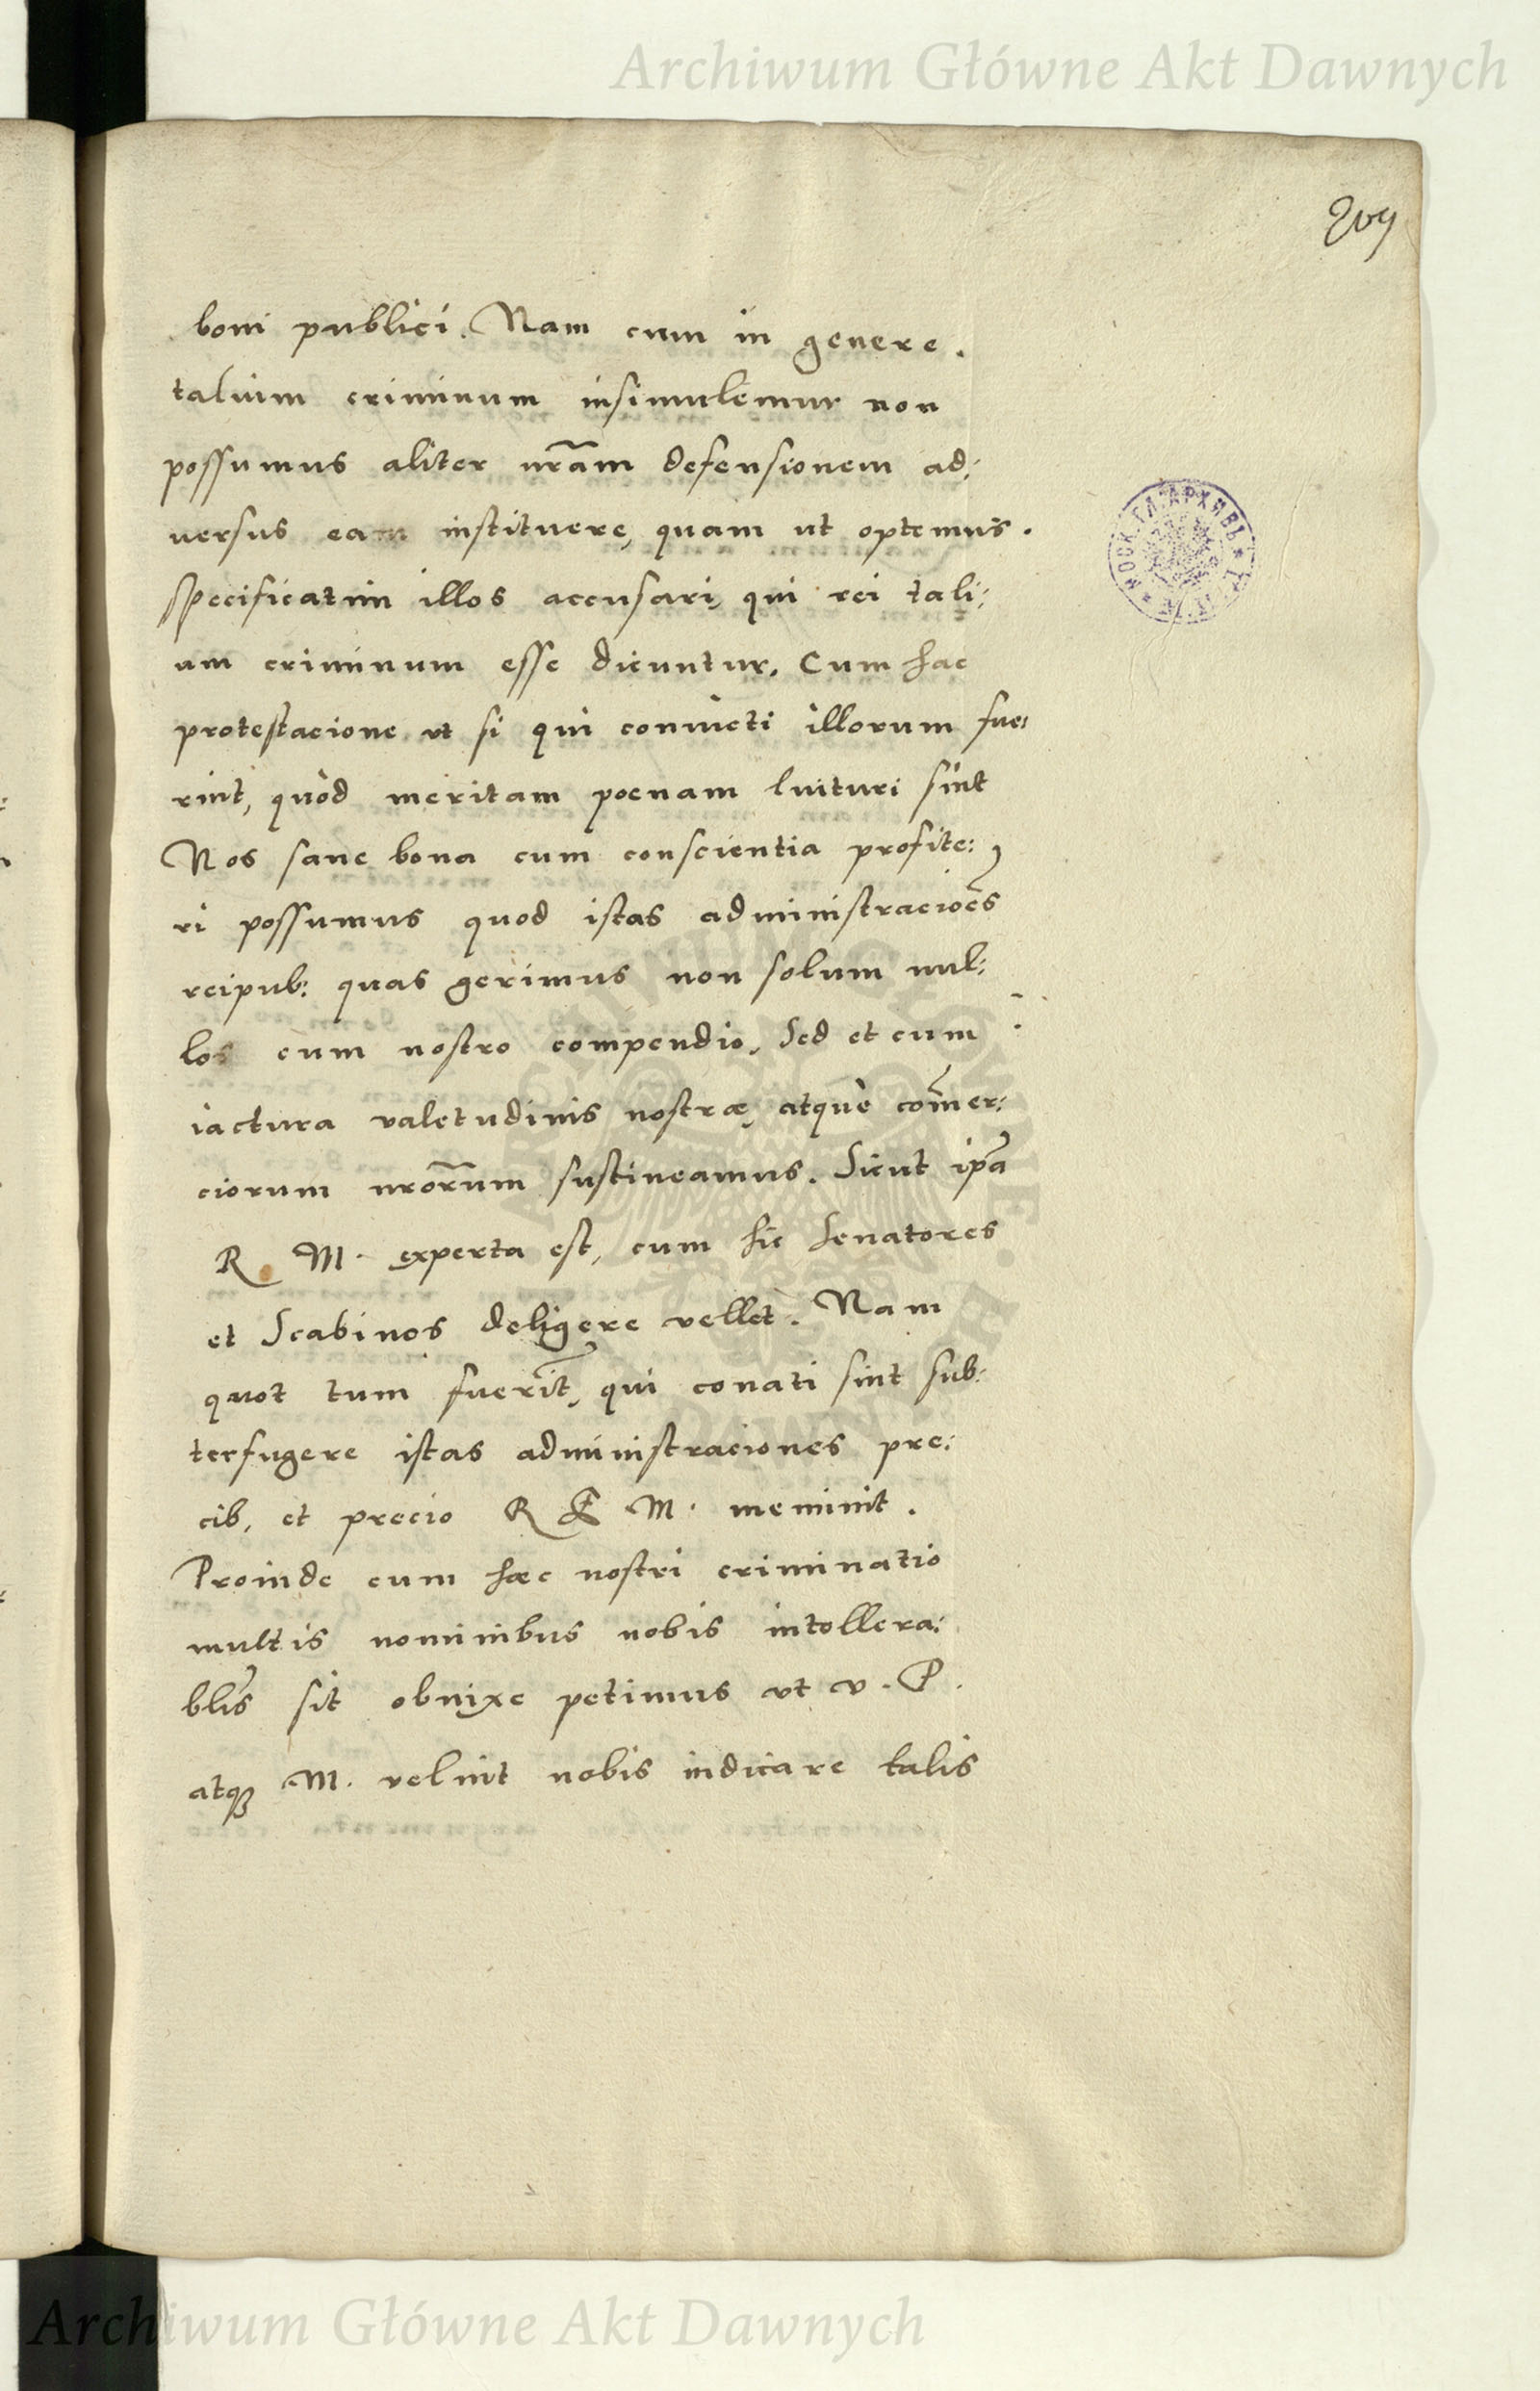 Archiwum Główne Akt Dawnych
209
boni publici. Nam cum in genere.
talium criminum insimulemur non
possumus aliter nr̃am defensionem ad:
uersus eam instituere, quam ut optemus.
specificatim illos accusari, qui rei tali:
um criminum esse dicuntur. Cum hac
protestacione ut si qui conuicti illorum fue:
rint, quòd meritam poenam luituri sint
Nos sane bona cum conscientia profite:
ri possumus quod istas administracioẽs
reipub: quas gerimus non solum nul:
los cum nostro compendio, Sed et cum
iactura valetudinis nostræ, atque com̃er:
ciorum nrõrum sustineamus. Sicut ip̃a
R M. experta est, cum hic Senatores
et Scabinos deligere vellet. Nam
quot tum fuerĩt, qui conati sint sub:
terfugere istas administraciones pre:
cib, et precio R E M. meminit.
Proinde cum hæc nostri criminatio
multis nominibus nobis intollera:
blĩs sit obnixe petimus ut v. P.
atqꝫ M. velint nobis indicare talis
Archiwum Główne Akt Dawnych